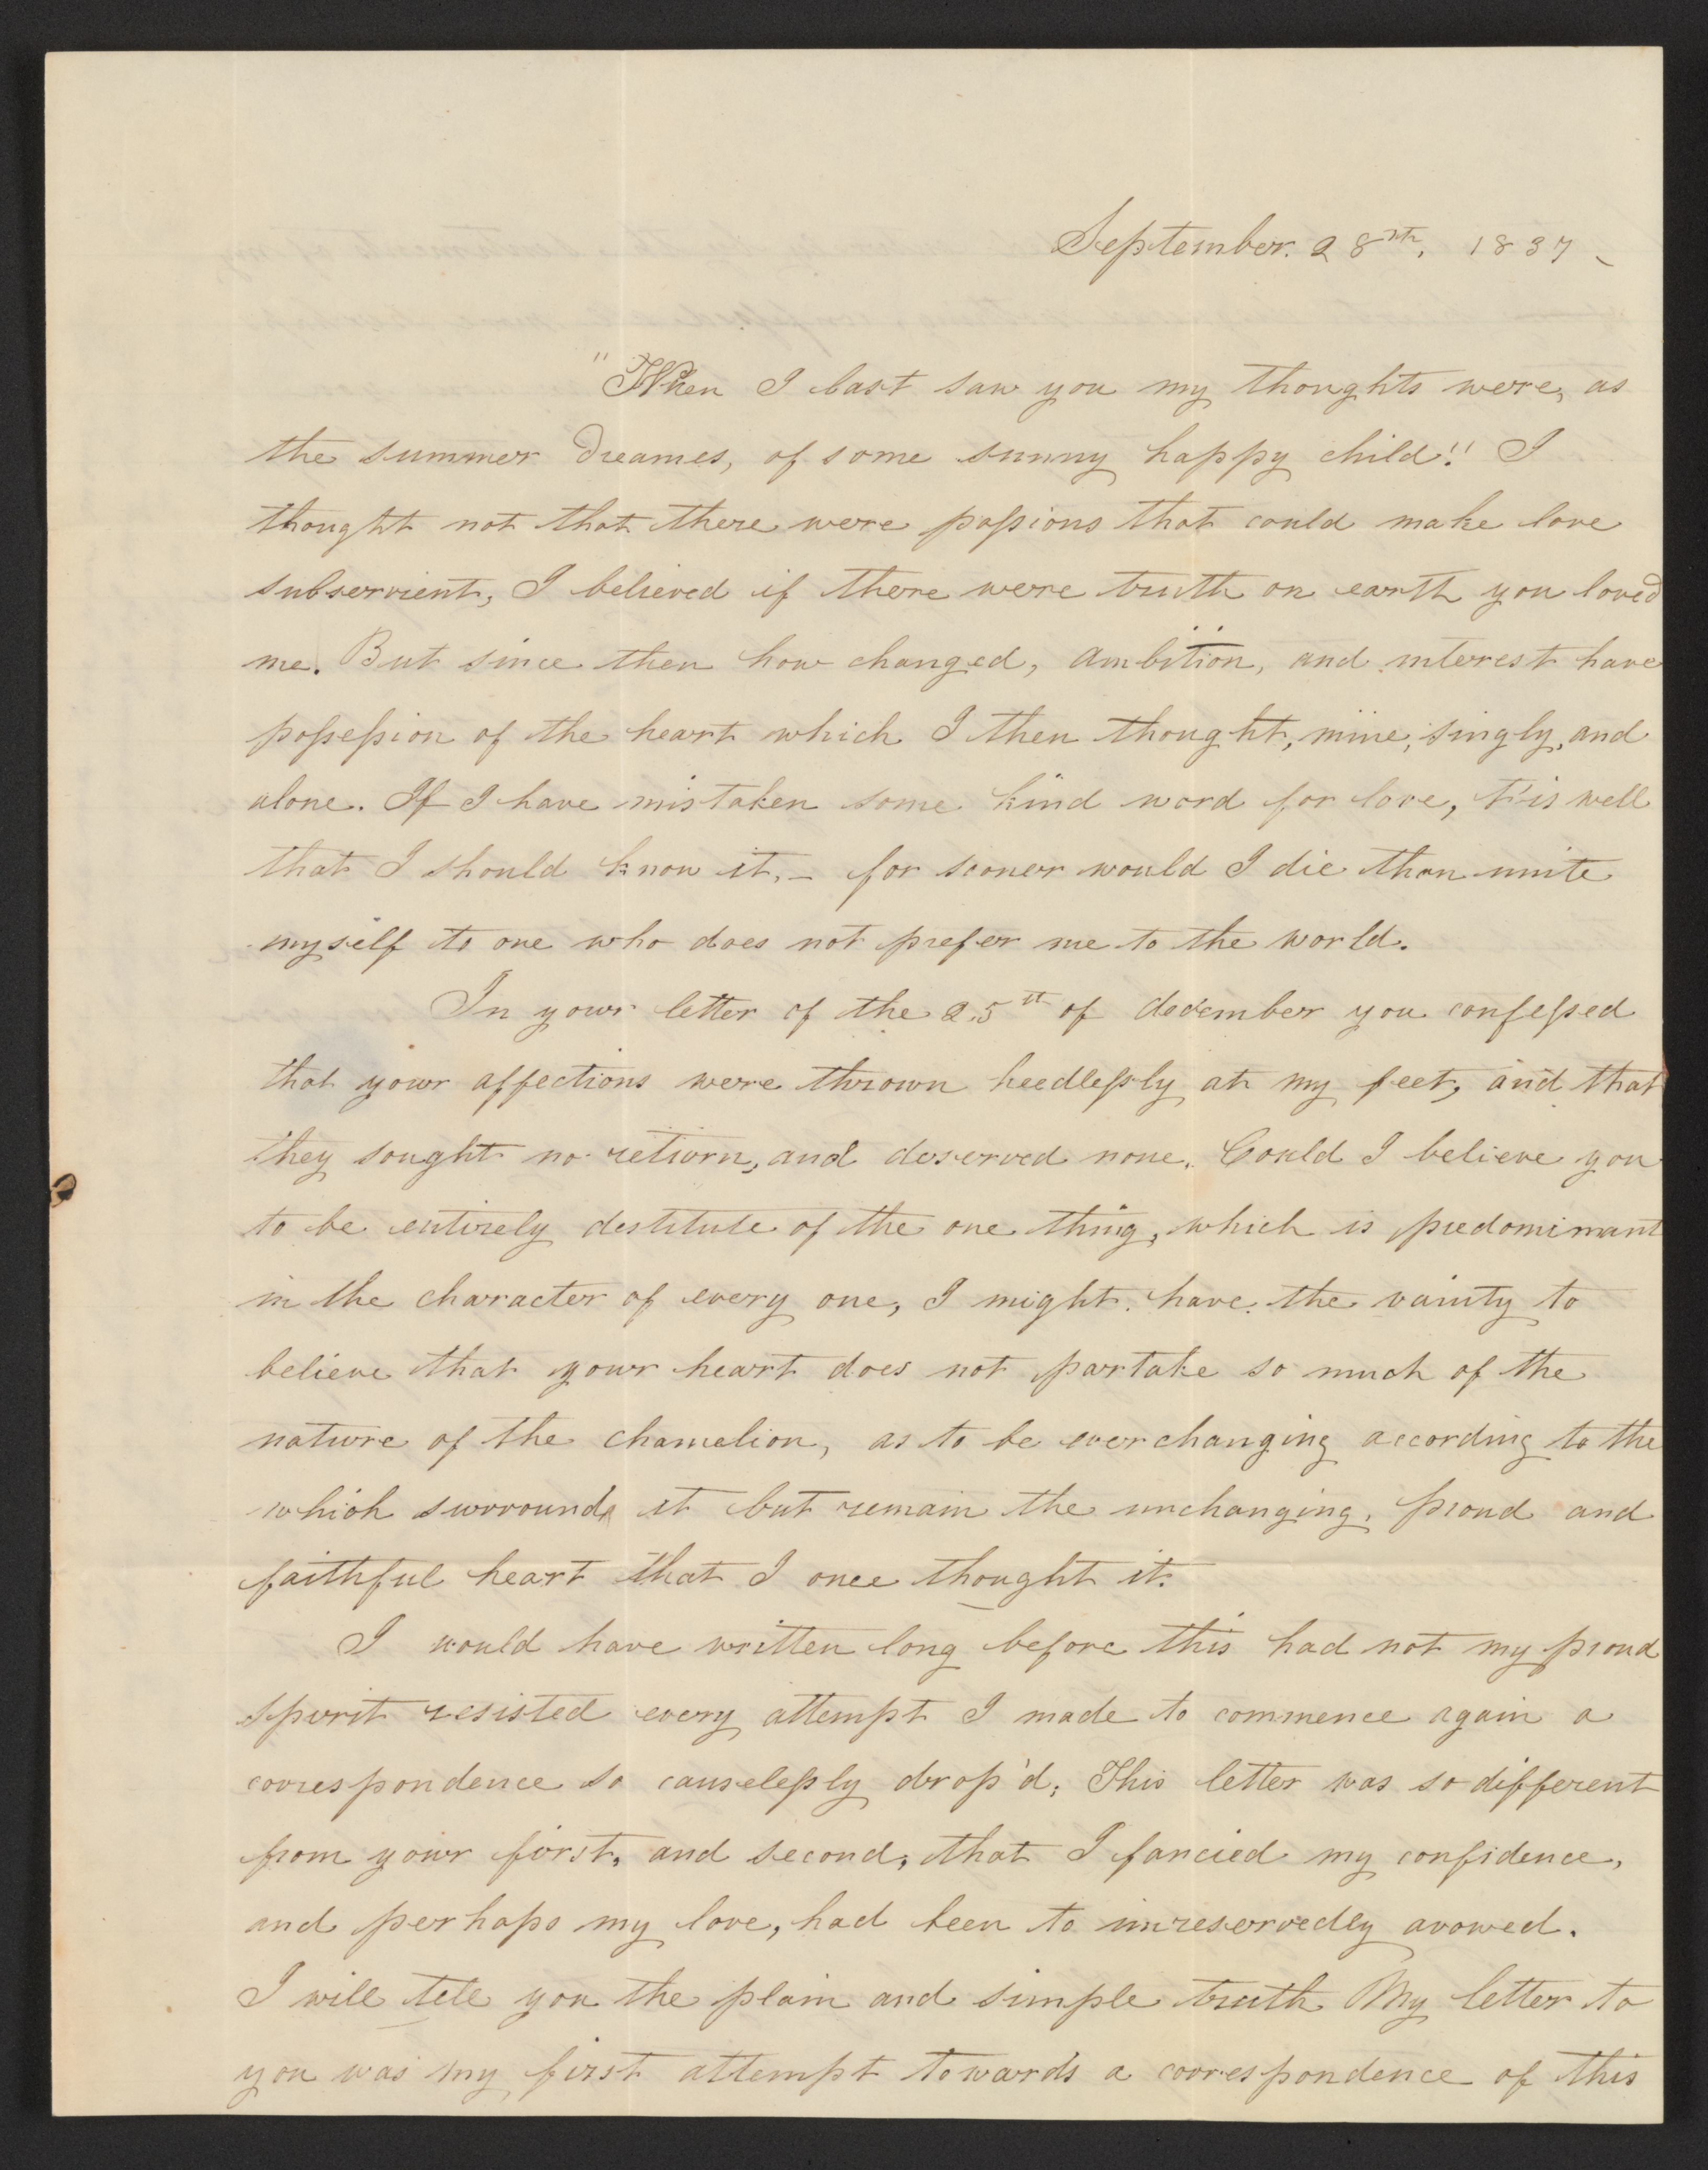 September. 28th, 1837
"When I last saw you my thoughts were, as
the summer dreames, of some sunny happy child!! I
thought not that there were passions that could make love
subservient, I believed if there were truth on earth you loved
me. But since then how changed, ambition, and interest have
possession of the heart which I then thought, mine, singly, and
alone. If I have mistaken some kind word for love, t'is well
that I should know it, – for sooner would I die than unite
myself to one who does not prefer me to the world.
In your letter of the 25th of december you confessed
that your affections were thrown heedlessly at my feet, and that
they sought no return, and deserved none. Could I believe you
to be entirely destitute of the one thing, which is predominant
in the character of every one, I might have the vainty to
believe that your heart does not partake so much of the
nature of the chamelion, as to be ever changing according to the
which surrounds it but remain the unchanging, proud and
faithful heart that I once thought it.
I would have written long before this had not my proud
spirit resisted every attempt I made to commence again a
correspondence so causelessly drop'd, This letter was so different
from your first, and second, that I fancied my confidence,
and perhaps my love, had been to unreservedly avowed.
I will tell you the plain and simple truth My letter to
you was my first attempt towards a correspondence of this